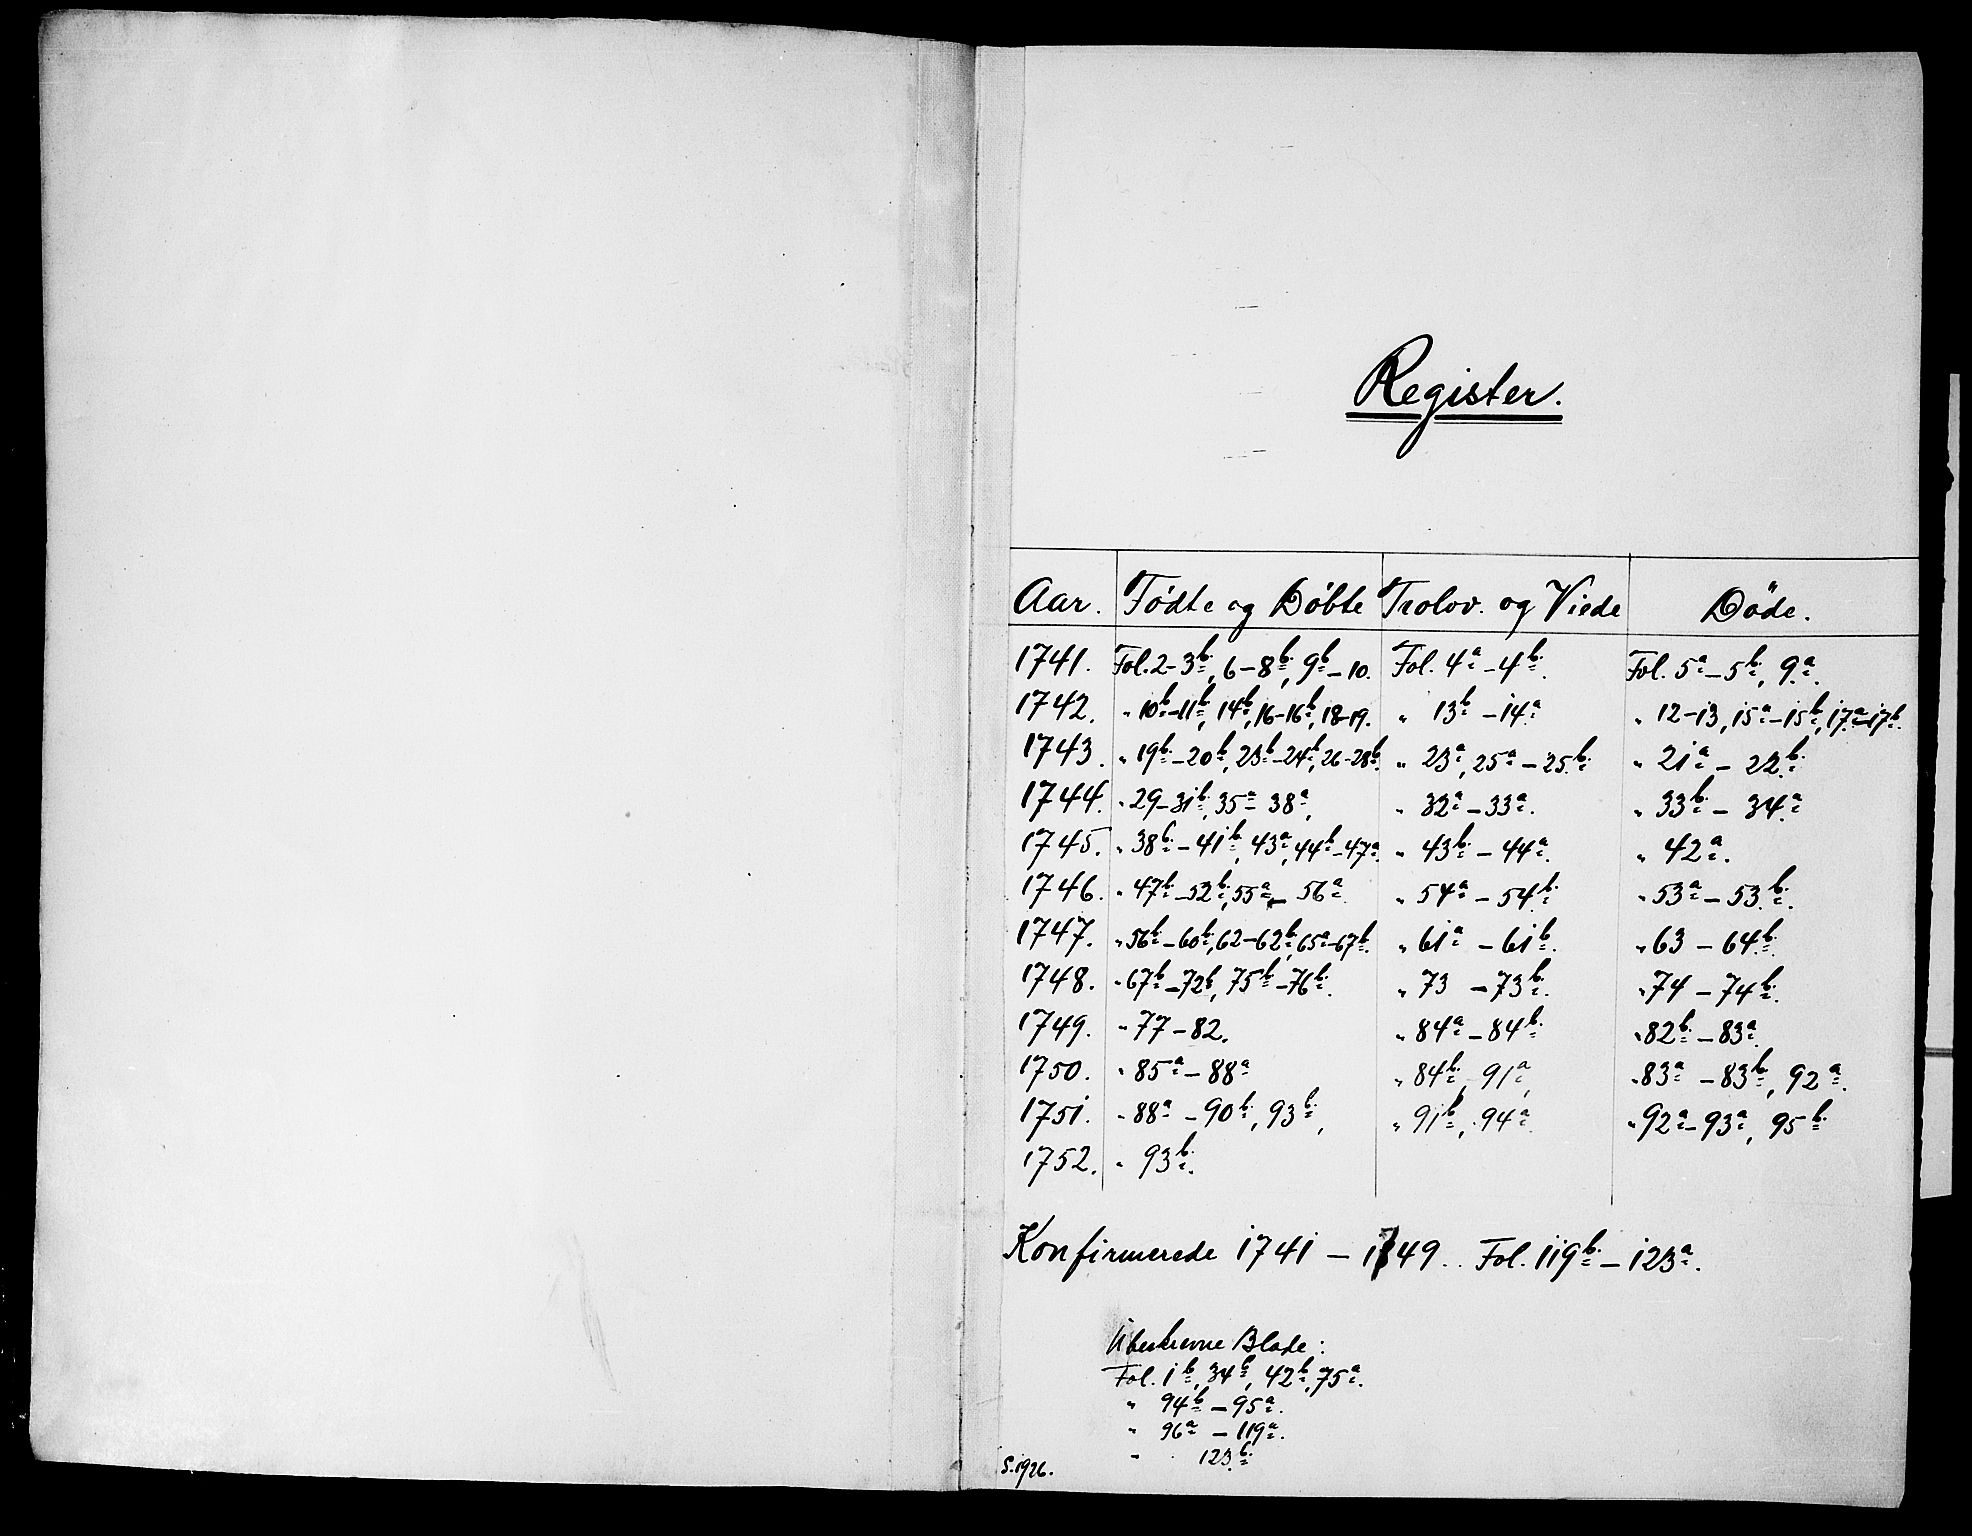 Register.
Aar. Fødte og Døbte Trolov. og Viede Döde.
1741. Fol. 2-3b, 6-8b, 9b-10. Fol. 4a-4b. Fol. 5a-5b, 9a.
1742. " 10b-11b, 14b, 16-16b, 18-19. " 13b-14a " 12-13, 15a-15b, 17a-17b.
1743. " 19b-20b, 23b-24b, 26-28b. " 23a, 25a-25b " 21a-22b
1744. " 29-31b, 35a-38a, " 32a-33a. " 33b-34a
1745. " 38b-41b, 43a, 44b-47a. " 43b-44a. " 42a.
1746. " 47b-52b, 55a-56a. " 54a-54b. " 53a-53b.
1747. " 56b-60b, 62-62b, 65a-67b. " 61a-61b. " 63-64b.
1748. " 67b-72b, 75b-76b. " 73-73b. " 74-74b.
1749. " 77-82. " 84a-84b " 82b-83a.
1750. " 85a-88a " 84b, 91a, " 83a-83b, 92a.
1751. " 88a-90b, 93b, " 91b, 94a. " 92a-93a, 95b
1752. " 93b.
Konfirmerede 1741-1749.. Fol. 119b-123a.
Ubeskrevne Blade:
Fol. 1b, 34b, 42b, 75a.
" 94b-95a.
" 96a-119a.
" 123b
S. 1926.